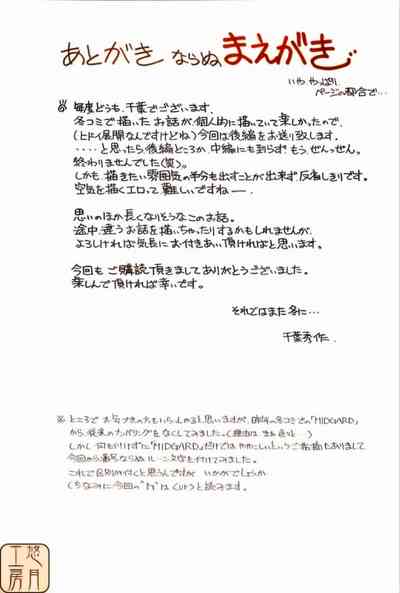 あとがき ならぬ まえがき
いや やっぱり
ページの都合で…
毎度どうも、千葉でございます。
冬コミで描いた お話が、個人的に描いていて楽しかったので
(ヒドイ展開なんですけどね)今回は後編をお送り致します。
・・・・と思ったら後編どころか、中編にも到らず もう ぜんっぜん。
終わりませんでした(笑)。
しかも 描きたい雰囲気の半分も出すことが出来ず 反省しきりです。
空気を描くエロって 難しいですねー。
思いのほか長くなりそうなこのお話。
途中、違うお話を描いちゃったりするかもしれませんが、
よろしければ気長に お付きあい頂ければと思います。
今回も ご購読頂きまして ありがとうございました。
楽しんで頂ければ幸いです。
それではまた冬に…
千葉秀作.
※ ところで お気づきの方もいらっしゃると思いますが、昨年の冬コミでの「MIDGARD」
から、従来のナンバリングを なくしてみました。(理由は まぁ 色々…)
しかし 何も付けずに「MIDGARD」だけでは ややこしいという ご指摘もありまして
今回から番号ならぬ ルーン文字を付けてみました。
これで区別が付くと思うんですが いかがでしょうか
(ちなみに今回の は と読みます。
悠月工房